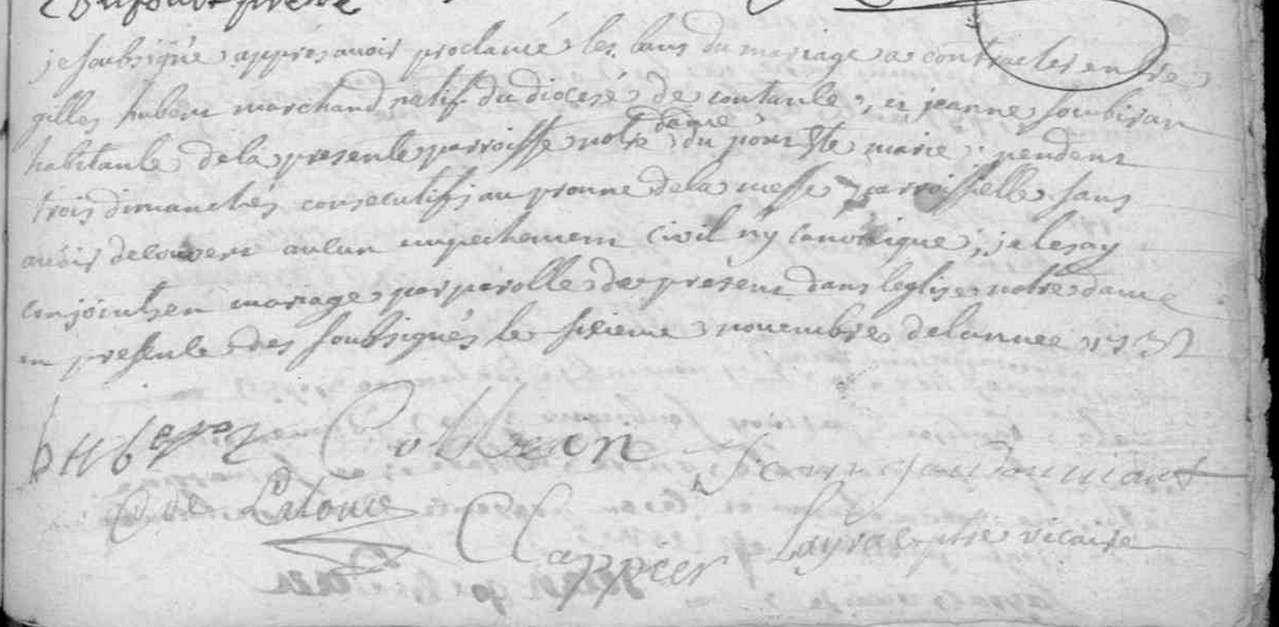 je soubsigné appres avoir proclamé les bans du mariage a contracter entre
gilles huberu marchand natif du diocese de coutanse, et jeanne soubiran
habitante de la presente parroisse notre dame du pour Ste marie pendent
trois dimanches consecutifs au pronne de la messe parroissielle sans
avoir decouvert aucun empechement civil ny canonique; je les ay
conjoints en mariage par parolle de present dans leglise notre dame
en presence des soubsignés le sixieme novembre de lannee 1732
Latouce
Cappier Layrac ptre vicaire